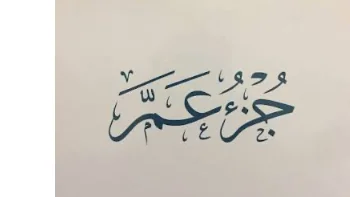 جُزْءُ عَمَّرَ